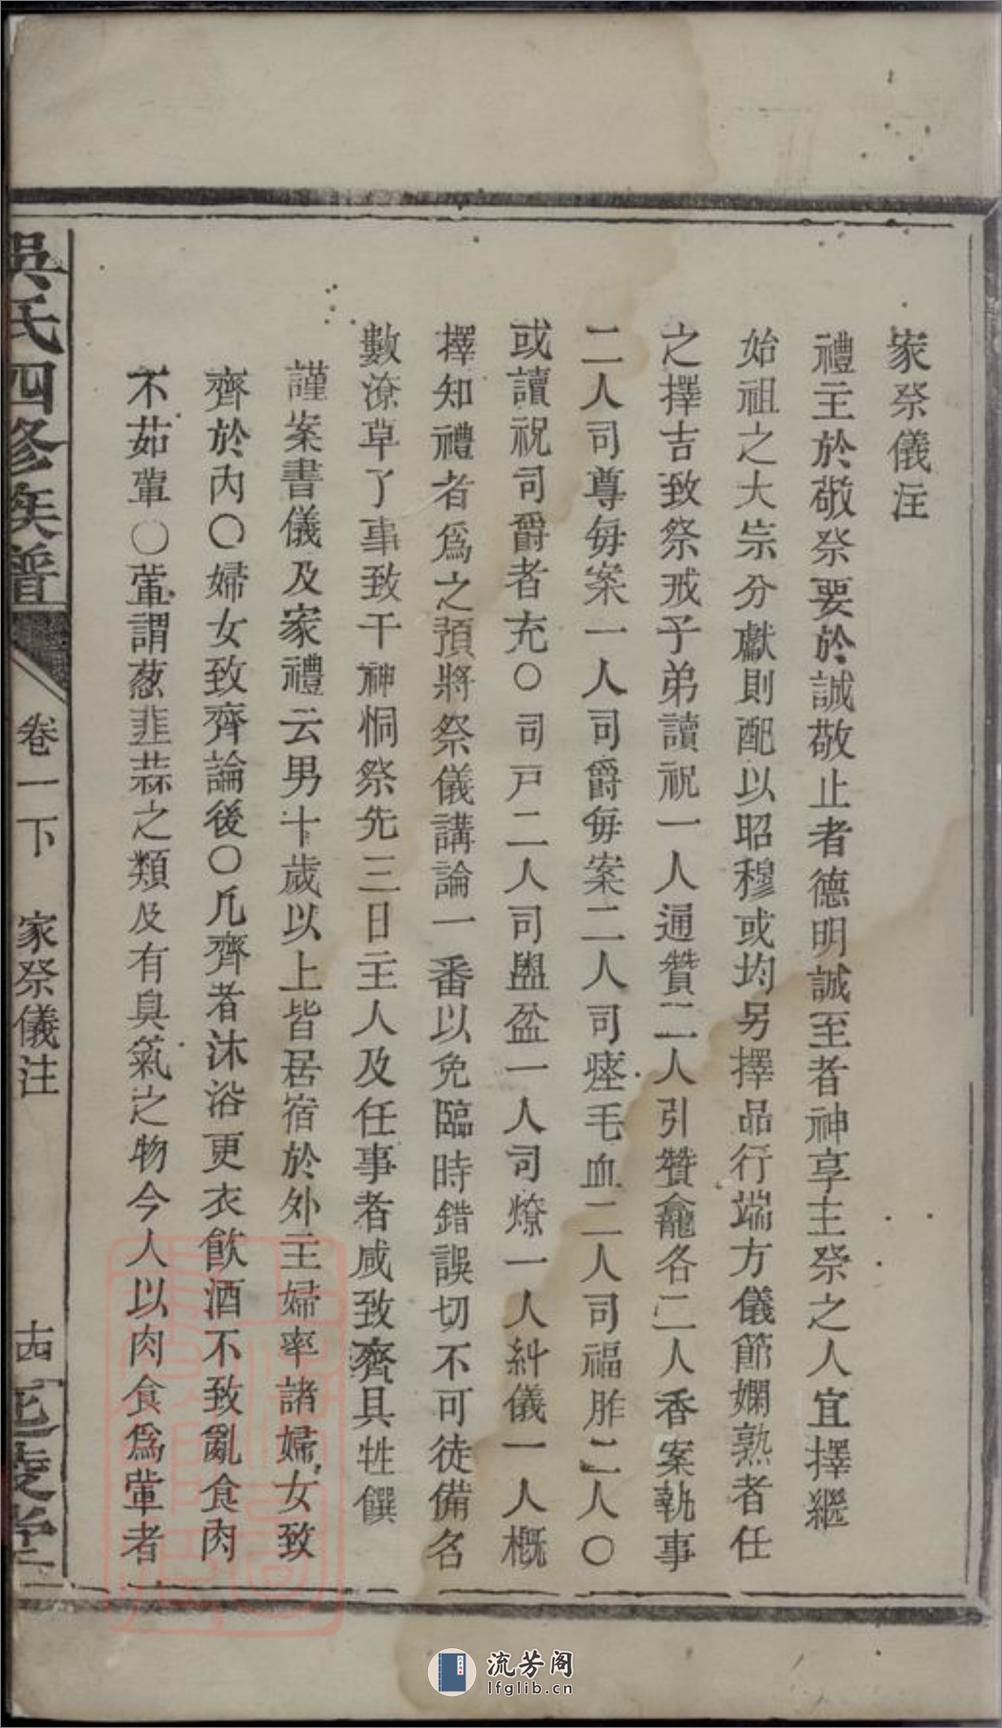 家祭儀注
禮主於敬祭要於誠敬止者德明誠至者神享主祭之人宜擇繼
始祖之大宗分獻則配以昭穆或均另擇品行端方儀節嫻熟者任
之擇吉致祭戒子弟讀祝一人通贊二人引贊龕各二人香案執事
二人司尊每案一人司爵每案二人司瘞毛血二人司福胙二人〇
或讀祝司爵者充〇司戸二人司盥盆一人司燎一人糾儀一人概
擇知禮者爲之預將祭儀講論一番以免臨時錯誤切不可徒備名
數潦草了事致干神恫祭先三日主人及任事者咸致齊具牲饌
謹案書儀及家禮云男十歲以上皆居宿於外主婦率諸婦女致
齊於內〇婦女致齊論後〇凡齊者沐浴更衣飮酒不致亂食肉
不茹葷〇葷謂葱韭蒜之類及有臭氣之物今人以肉食爲葷者
吳氏四修族譜
卷一下 家祭儀注
古 堂
流芳阁
lfglib.cn